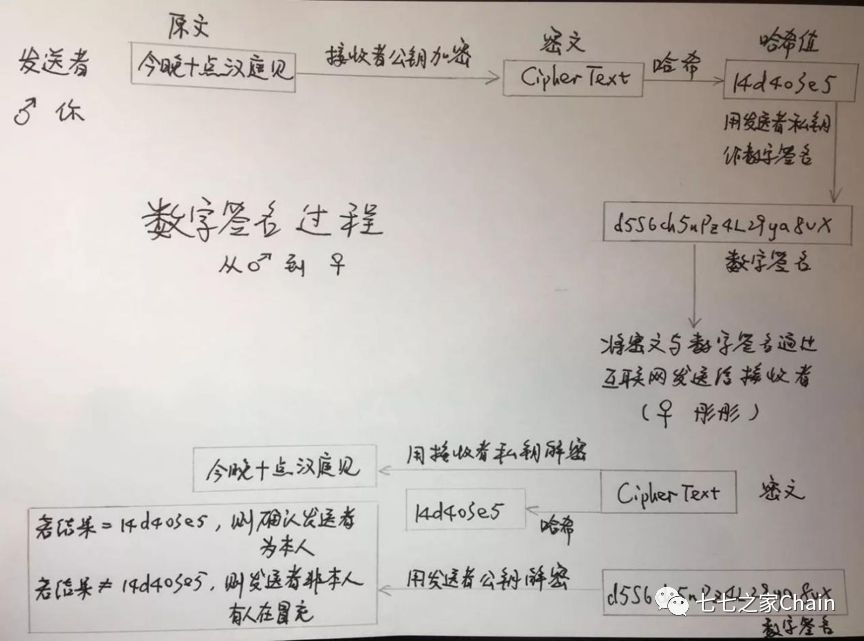 原文
密文
哈希值
发送者
今晚十点汉庭见
接收者公钥加密
Cipher Text
哈希
14d403e5
♂ 你
用发送者私钥
作数字签名
数字签名过程
从♂到♀
d5S6ch5nPz4L29ya8vX
数字签名
将密文与数字签名通过
互联网发送给接收者
(♀ 彤彤)
今晚十点汉庭见
用接收者私钥解密
Cipher Text
密文
14d403e5
哈希
若结果=14d403e5,则确认发送者
为本人
若结果≠14d403e5,则发送者非本人
有人在冒充
用发送者公钥解密
d5S6ch5nPz4L29ya8vX
数字签名
七七之家Chain